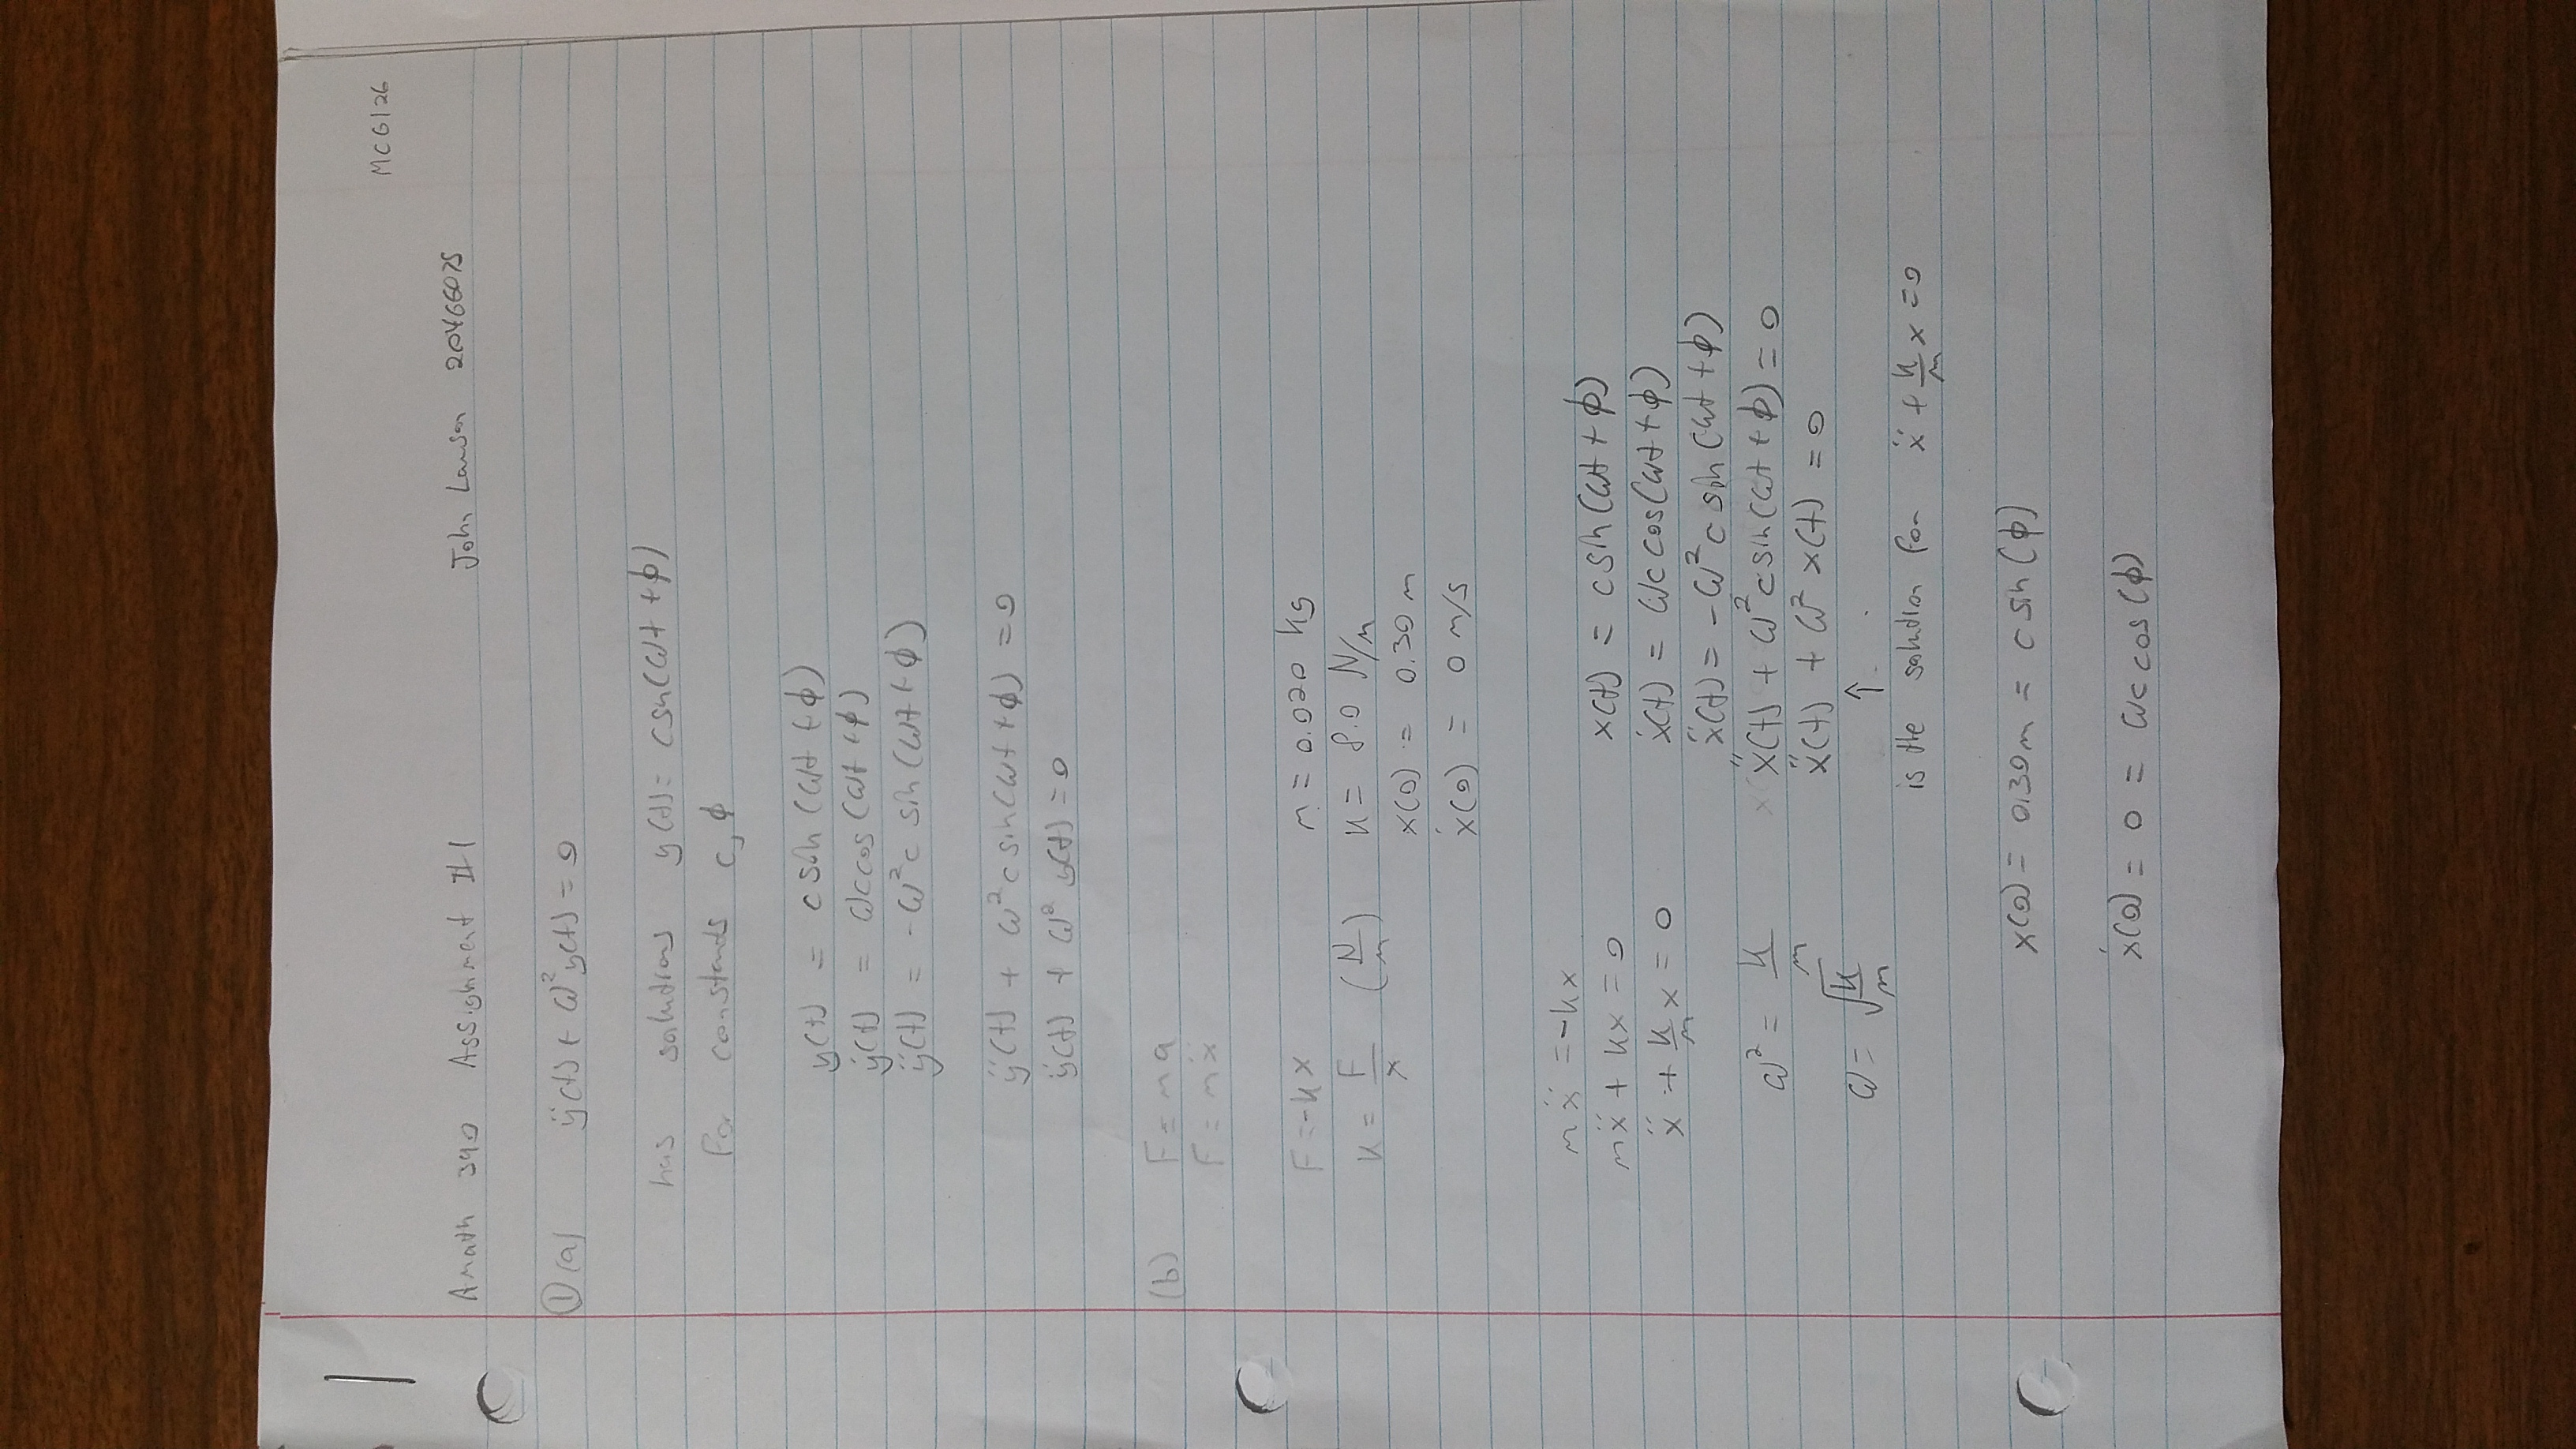 MC6126
Amath 390 Assignment #1 John Lawson 20466075
① (a) ÿ(t) + ω²y(t) = 0
has solutions y(t) = c sin(ωt + φ)
for constants c, φ
y(t) = c sin(ωt + φ)
ẏ(t) = ωc cos(ωt + φ)
ÿ(t) = -ω²c sin(ωt + φ)
ÿ(t) + ω²c sin(ωt + φ) = 0
ÿ(t) + ω² y(t) = 0
(b) F = ma
F = mẍ
F = -kx m = 0.020 kg
k = F/x (N/m) k = 8.0 N/m
x(0) = 0.30 m
ẋ(0) = 0 m/s
mẍ = -kx
mẍ + kx = 0 x(t) = c sin(ωt + φ)
ẍ + k/m x = 0 ẋ(t) = ωc cos(ωt + φ)
ẍ(t) = -ω²c sin(ωt + φ)
ω² = k/m ẍ(t) + ω²c sin(ωt + φ) = 0
ẍ(t) + ω² x(t) = 0
ω = √(k/m) ↑
is the solution for ẍ + k/m x = 0
x(0) = 0.30m = c sin(φ)
ẋ(0) = 0 = ωc cos(φ)